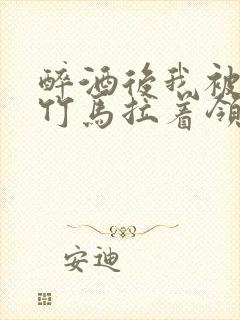 醉酒後我被
竹馬拉着領
安迪